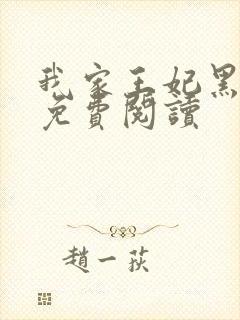 我家王妃黑
免費閱讀
趙一荻